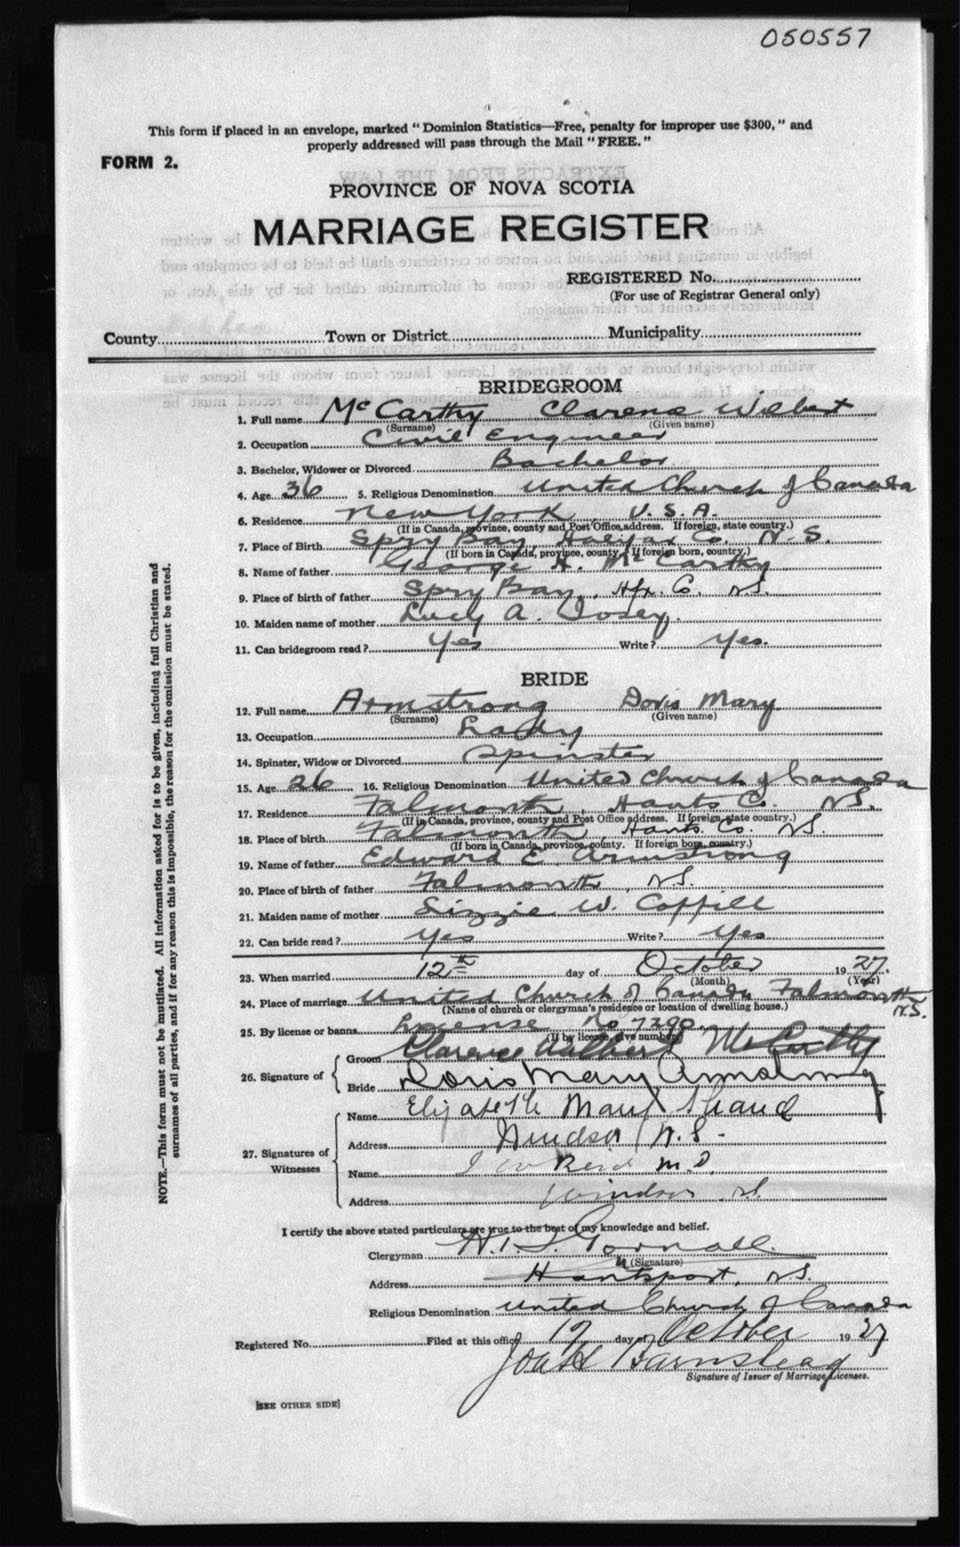 050557
This form if placed in an envelope, marked "Dominion Statistics—Free, penalty for improper use $300," and
properly addressed will pass through the Mail "FREE."
FORM 2.
PROVINCE OF NOVA SCOTIA
MARRIAGE REGISTER
REGISTERED No.
(For use of Registrar General only)
County Town or District Municipality
BRIDEGROOM
1. Full name McCarthy Clarence Wilbert
(Surname) (Given name)
2. Occupation Civil Engineer
3. Bachelor, Widower or Divorced Bachelor
4. Age 36 5. Religious Denomination United Church of Canada
6. Residence New York U.S.A.
(If in Canada, province, county and Post Office address. If foreign, state country.)
7. Place of Birth Spry Bay, Halifax Co. N.S.
(If born in Canada, province, county. If foreign born, country.)
8. Name of father George H. McCarthy
9. Place of birth of father Spry Bay, Hfx. Co. N.S.
10. Maiden name of mother Lucy A.
11. Can bridegroom read? Yes Write? Yes.
BRIDE
12. Full name Armstrong Doris Mary
(Surname) (Given name)
13. Occupation Lady
14. Spinster, Widow or Divorced Spinster
15. Age 26 16. Religious Denomination United Church of Canada
17. Residence Falmouth, Hants Co. N.S.
(If in Canada, province, county and Post Office address. If foreign, state country.)
18. Place of birth Falmouth, Hants. Co. N.S.
(If born in Canada, province, county. If foreign born, country.)
19. Name of father Edward E. Armstrong
20. Place of birth of father Falmouth, N.S.
21. Maiden name of mother Lizzie W. Coffill
22. Can bride read? Yes Write? Yes
23. When married 12th day of October 1927.
(Month) (Year)
24. Place of marriage United Church of Canada Falmouth N.S.
(Name of church or clergyman's residence or location of dwelling house.)
25. By license or banns License No 7290
(If by license, give number)
26. Signature of
Groom Clarence Wilbert McCarthy
Bride Doris Mary Armstrong
27. Signatures of Witnesses
Name Elizabeth Mary Shand
Address Windsor N.S.
Name Reid M.D.
Address Windsor N.S.
I certify the above stated particulars are true to the best of my knowledge and belief.
Clergyman Gornall
(Signature)
Address Hantsport, N.S.
Religious Denomination United Church of Canada
Registered No. Filed at this office 17 day of October 1927
Barnstead
Signature of Issuer of Marriage Licenses.
[SEE OTHER SIDE]
NOTE.—This form must not be mutilated. All information asked for is to be given, including full Christian and
surnames of all parties, and if for any reason this is impossible, the reason for the omission must be stated.